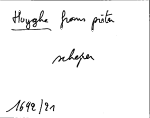 Huyghe frans pieter
schepen
1692/21